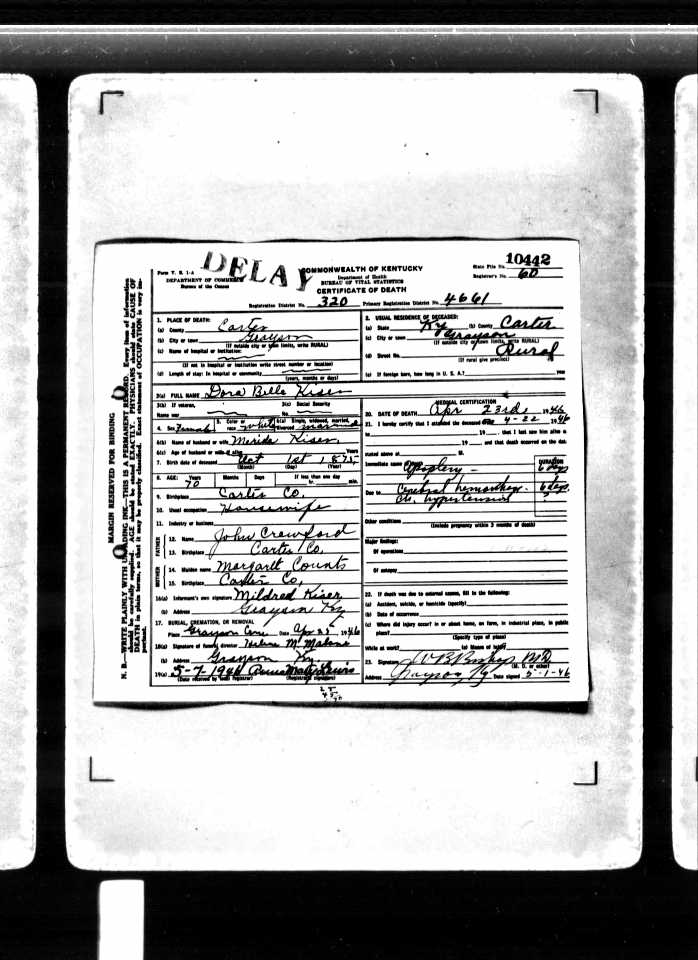 DELAY
10442
Form V. S. 1-A
DEPARTMENT OF COMMERCE
Bureau of the Census
COMMONWEALTH OF KENTUCKY
Department of Health
BUREAU OF VITAL STATISTICS
CERTIFICATE OF DEATH
State File No.
Registrar's No. 60
Registration District No. 320 Primary Registration District No. 4661
MARGIN RESERVED FOR BINDING
N. B.—WRITE PLAINLY WITH UNFADING INK—THIS IS A PERMANENT RECORD. Every item of information
should be carefully supplied. AGE should be stated EXACTLY. PHYSICIANS should state CAUSE OF
DEATH in plain terms, so that it may be properly classified. Exact statement of OCCUPATION is very im-
portant.
1. PLACE OF DEATH:
(a) County Carter
(b) City or town Grayson
(If outside city or town limits, write RURAL)
(c) Name of hospital or institution:
(If not in hospital or institution write street number or location)
(d) Length of stay: In hospital or community
(years, months or days)
2. USUAL RESIDENCE OF DECEASED:
(a) State Ky (b) County Carter
(c) City or town Grayson
(If outside city or town limits, write RURAL)
(d) Street No. Rural
(If rural give precinct)
(e) If foreign born, how long in U. S. A.? year
3(a) FULL NAME Dora Belle Kiser
3(b) If veteran,
Name war
3(c) Social Security
No.
4. Sex Female 5. Color or race white 6(a) Single, widowed, married, divorced married
6(b) Name of husband or wife Merida Kiser
6(c) Age of husband or wife if alive Years
7. Birth date of deceased Oct 1st 1875
(Month) (Day) (Year)
8. AGE: Years Months Days If less than one day
70 hr. min.
9. Birthplace Carter Co.
10. Usual occupation Housewife
11. Industry or business
FATHER
12. Name John Crawford
13. Birthplace Carter Co,
MOTHER
14. Maiden name Margaret Counts
15. Birthplace Carter Co,
16(a) Informant's own signature Mildred Kiser
(b) Address Grayson Ky
17. BURIAL, CREMATION, OR REMOVAL
Place Grayson Cem Date Apr 25 1946
18(a) Signature of funeral director M. Malone
(b) Address Grayson Ky.
19(a) 5-7-1946 Lewis
(Date received by local registrar) (Registrar's signature)
MEDICAL CERTIFICATION
20. DATE OF DEATH Apr 23rd 1946
21. I hereby certify that I attended the deceased 4-22 1946
to 19 , that I last saw him alive
19 and that death occurred on the date
stated above at M.
Immediate cause Apoplexy DURATION 6 days
Due to Cerebral hemorrhage 6 days
hypertension ?
Other conditions
(Include pregnancy within 3 months of death)
Major findings:
Of operations
Of autopsy
22. If death was due to external causes, fill in the following:
(a) Accident, suicide, or homicide (specify)
(b) Date of occurrence
(c) Where did injury occur? in or about home, on farm, in industrial place, in public
place?
(Specify type of place)
While at work? (e) Means of injury
23. Signature M D
(M. D. or other)
Address Grayson Ky. Date signed 5-1-46